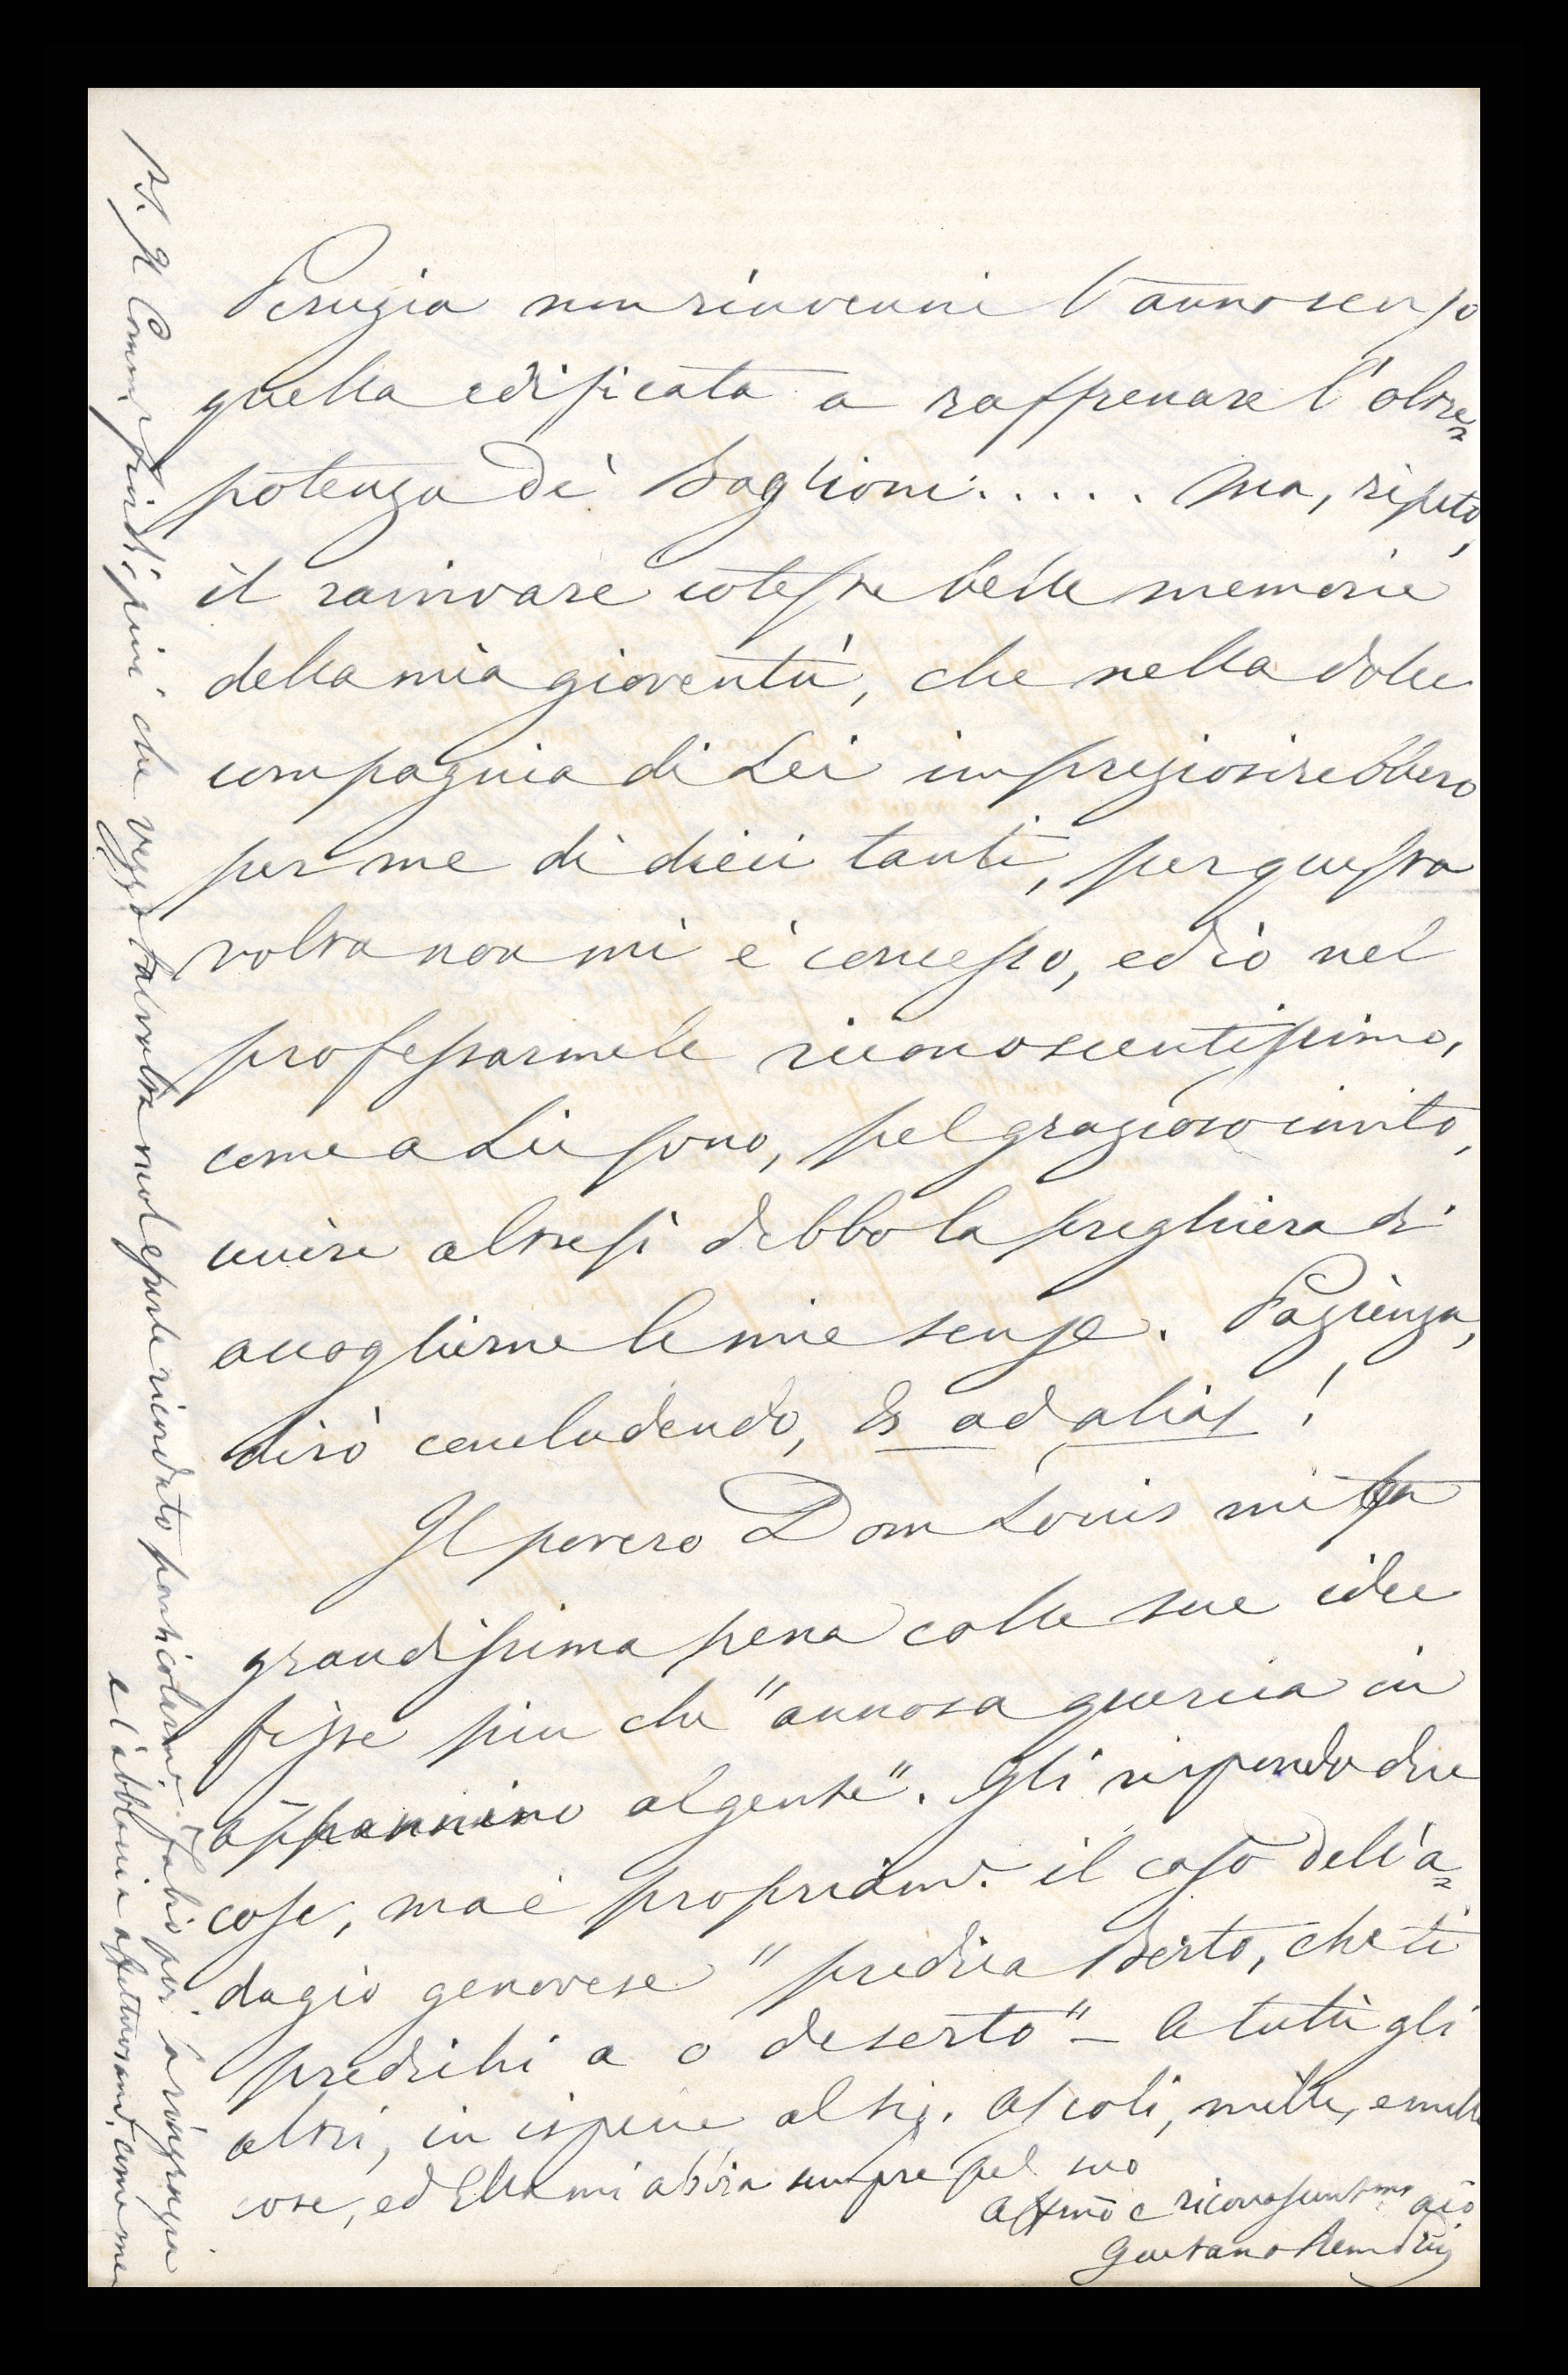 Perugia non rinvenni l'anno scorso
quella edificata a raffrenare l'oltre=
potenza dei Baglioni..... Ma, ripeto,
il ravvivare coteste belle memorie
della mia gioventù, che nella dolce
compagnia di Lei impreziosirebbero
per me di dieci tanti, per questa
volta non mi è concesso, ed io nel
professarmele riconoscentissimo,
come a Lei sono, pel grazioso invito,
unire altresì debbo la preghiera di
accoglierne le mie scuse. Pazienza,
dirò concludendo, et ad alias!
Il povero Dom Louis mi fa
grandissima pena colle sue idee
fisse più che "annosa quercia in
appennino algente". Gli rispondo due
cose, ma è propriam.e il caso dell'a=
dagio genovese "predica Berto, che ti
predichi a o deserto" – A tutti gli
altri, in ispecie al sig. Ascoli, mille, e mille
cose, ed Ella mi abbia sempre pel suo
affmo e riconoscentmo aio
Gaetano
P.S. Il Comm. che veggo talvolta vuol esserle ricordato particolarm.e. Fabio poi la ringrazia
e l'abbraccia affettuosam.e come me